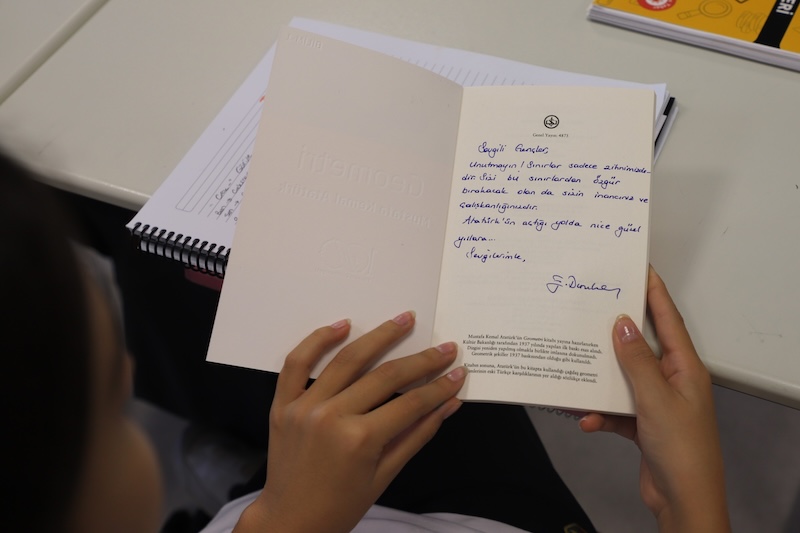 Genel Yayın: 4871
Sevgili Gençler,
Unutmayın! Sınırlar sadece zihnimizde-
dir. Sizi bu sınırlardan özgür
bırakacak olan da sizin inancınız ve
çalışkanlığınızdır.
Atatürk'ün açtığı yolda nice güzel
yıllara...
Sevgilerimle,
Mustafa Kemal Atatürk'ün Geometri kitabı yayına hazırlanırken
Kültür Bakanlığı tarafından 1937 yılında yapılan ilk baskı esas alındı.
Dizgisi yeniden yapılmış olmakla birlikte imlasına dokunulmadı.
Geometrik şekiller 1937 baskısından olduğu gibi kullanıldı.
Kitabın sonuna, Atatürk'ün bu kitapta kullandığı çağdaş geometri
terimlerinin eski Türkçe karşılıklarına yer aldığı sözlükçe eklendi.
ERİ